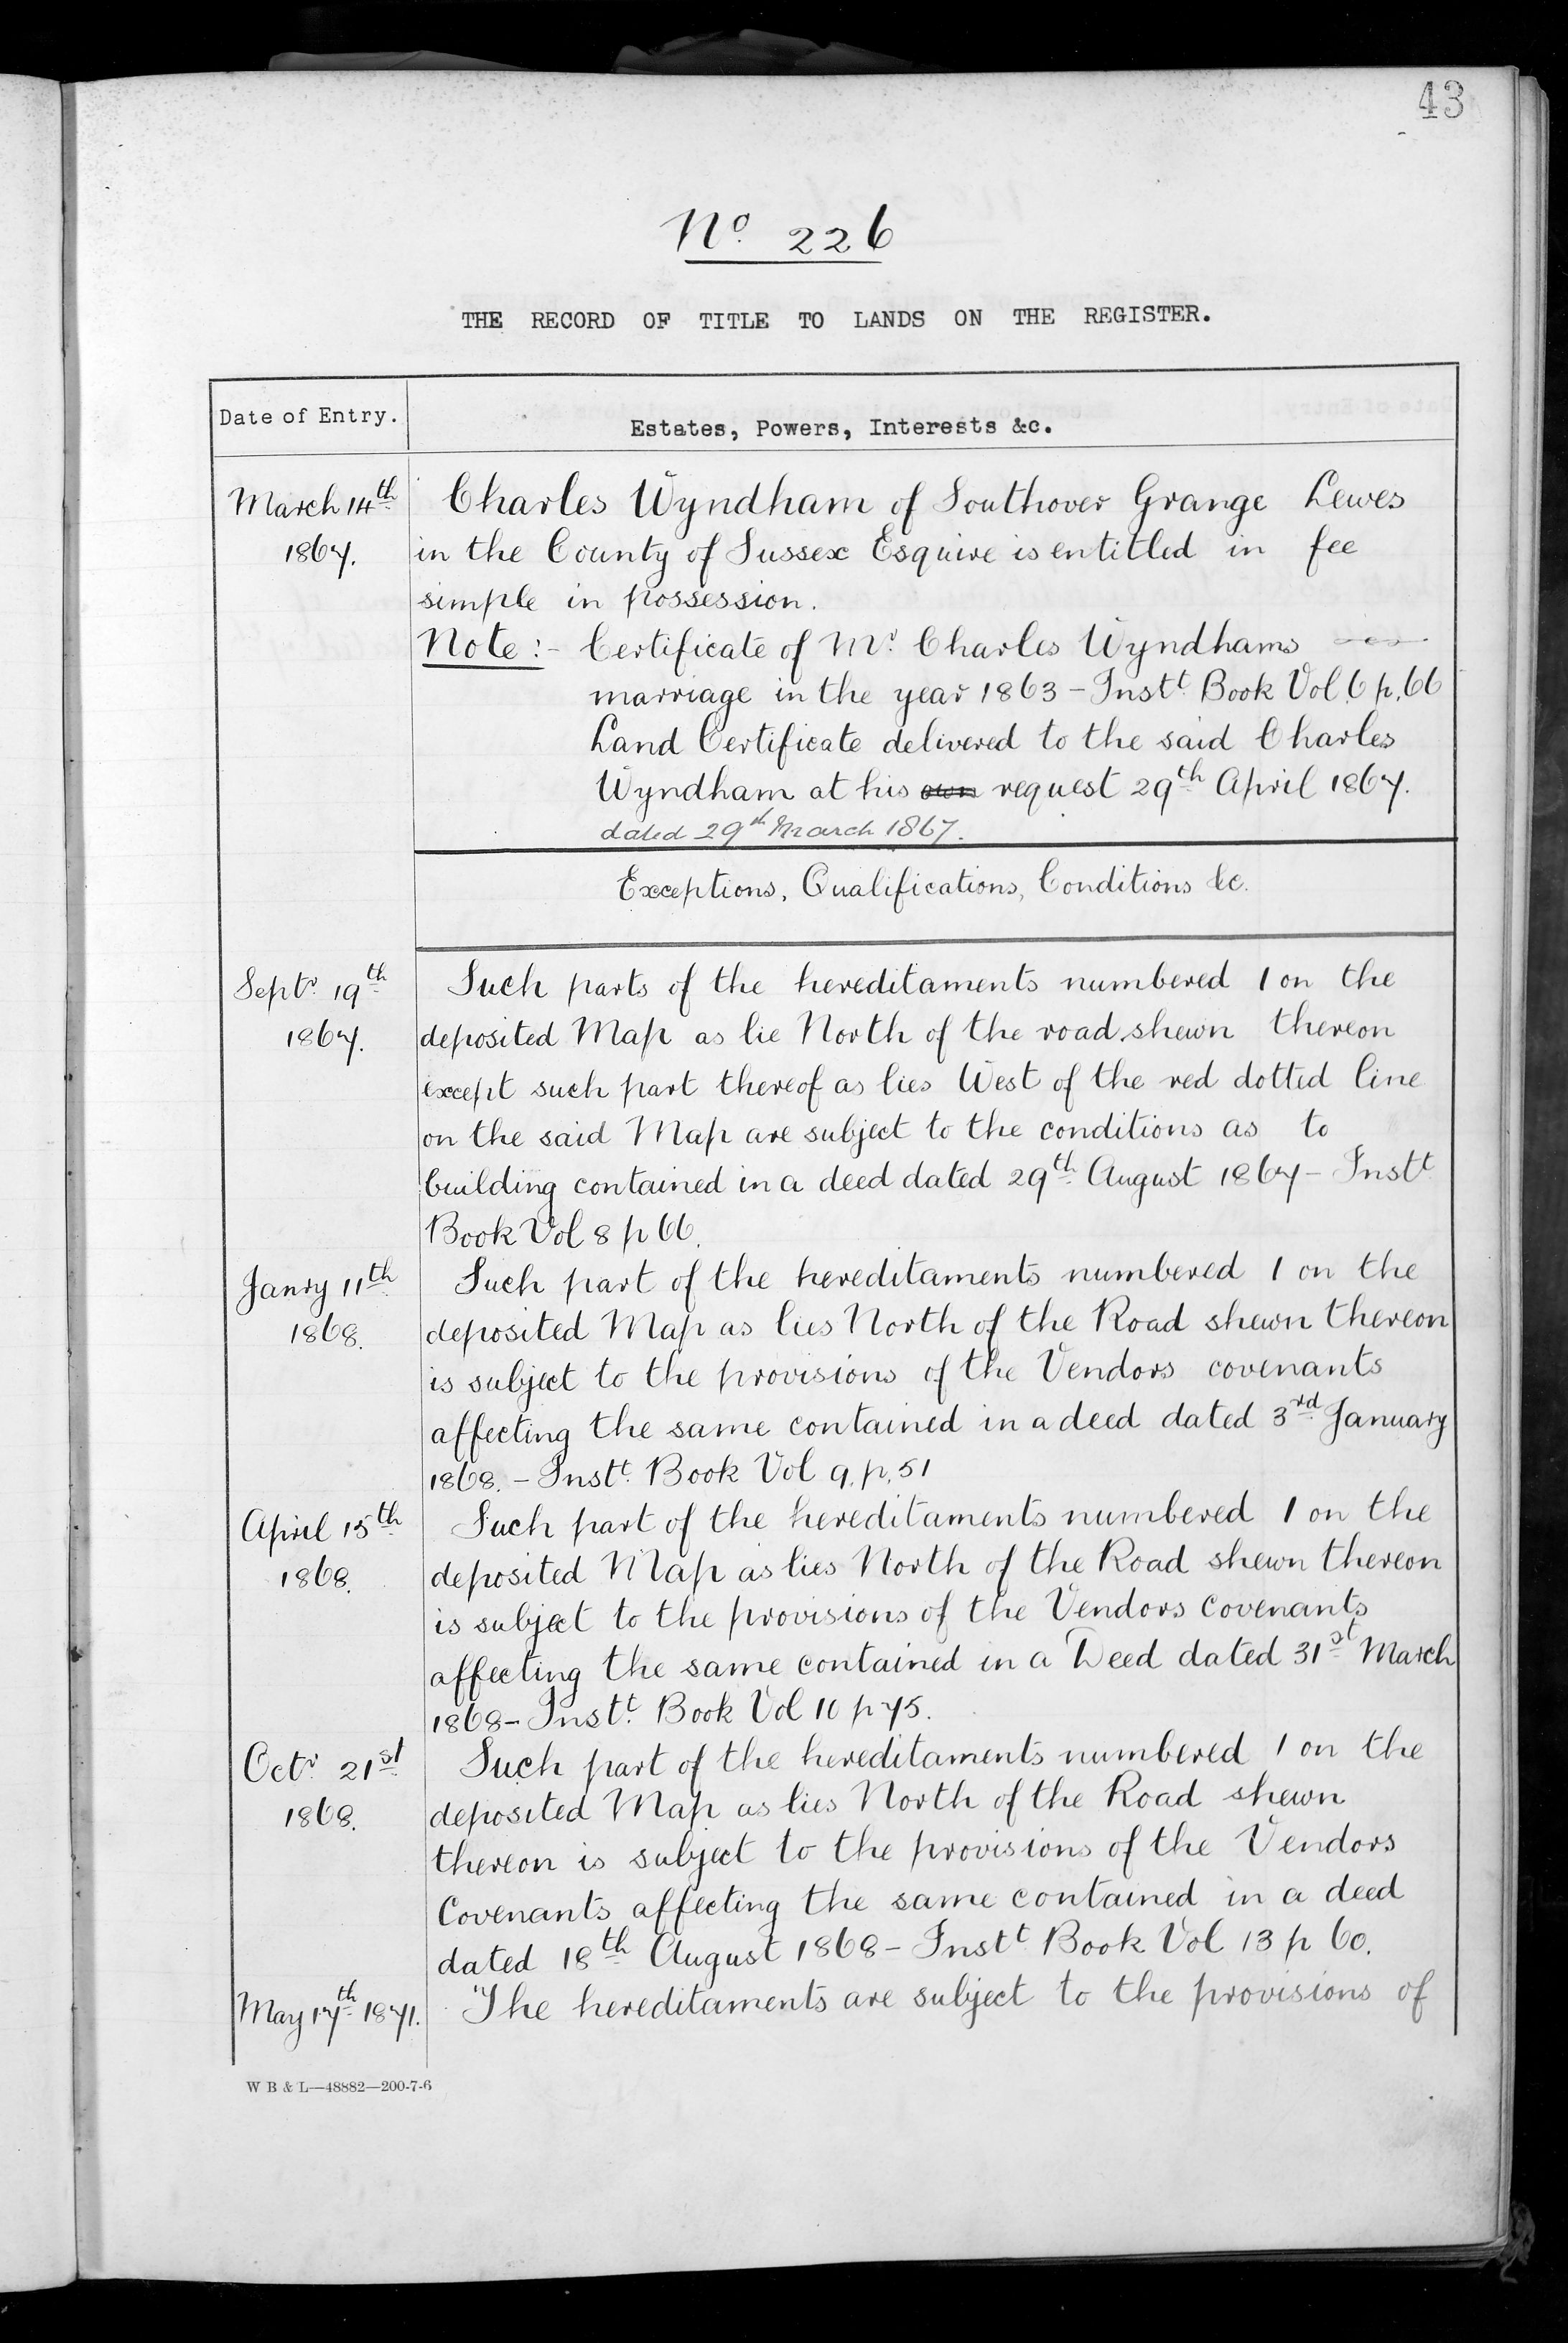 43
No. 226
THE RECORD OF TITLE TO LANDS ON THE REGISTER.
Date of Entry.
Estates, Powers, Interests &c.
March 14th
1867.
Charles Wyndham of Southover Grange Lewes
in the County of Sussex Esquire is entitled in fee
simple in possession.
Note:- Certificate of Mr. Charles Wyndhams
marriage in the year 1863 - Instt. Book Vol. 6 p. 66
Land Certificate delivered to the said Charles
Wyndham at his own request 29th April 1867.
dated 29th March 1867.
Exceptions, Qualifications, Conditions &c.
Septr. 19th
1867.
Such parts of the hereditaments numbered 1 on the
deposited Map as lie North of the road shewn thereon
except such part thereof as lies West of the red dotted line
on the said Map are subject to the conditions as to
building contained in a deed dated 29th August 1867 - Instt.
Book Vol 8 p 66.
Janry 11th
1868.
Such part of the hereditaments numbered 1 on the
deposited Map as lies North of the Road shewn thereon
is subject to the provisions of the Vendors covenants
affecting the same contained in a deed dated 3rd January
1868. - Instt. Book Vol 9. p. 51
April 15th
1868.
Such part of the hereditaments numbered 1 on the
deposited Map as lies North of the Road shewn thereon
is subject to the provisions of the Vendors Covenants
affecting the same contained in a Deed dated 31st March
1868 - Instt. Book Vol 10 p 75.
Octr. 21st
1868.
Such part of the hereditaments numbered 1 on the
deposited Map as lies North of the Road shewn
thereon is subject to the provisions of the Vendors
Covenants affecting the same contained in a deed
dated 18th August 1868 - Instt. Book Vol 13 p 60.
May 17th 1871.
The hereditaments are subject to the provisions of
W B & L—48882—200-7-6